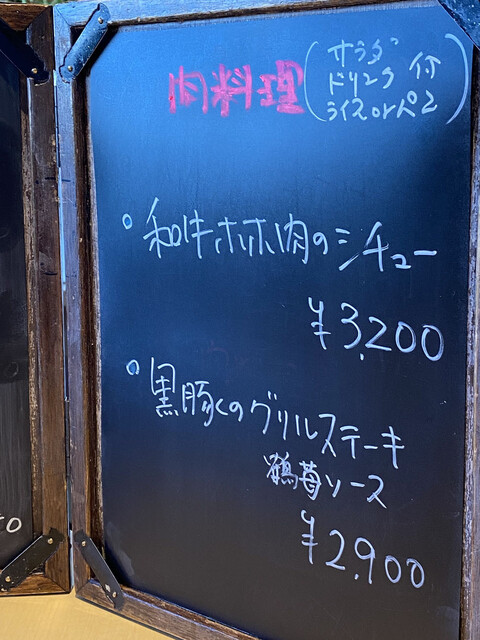 肉料理
(サラダ
ドリンク 付
ライスorパン)
和牛ホホ肉のシチュー
¥3,200
黒豚くのグリルステーキ
苺ソース
¥2,900